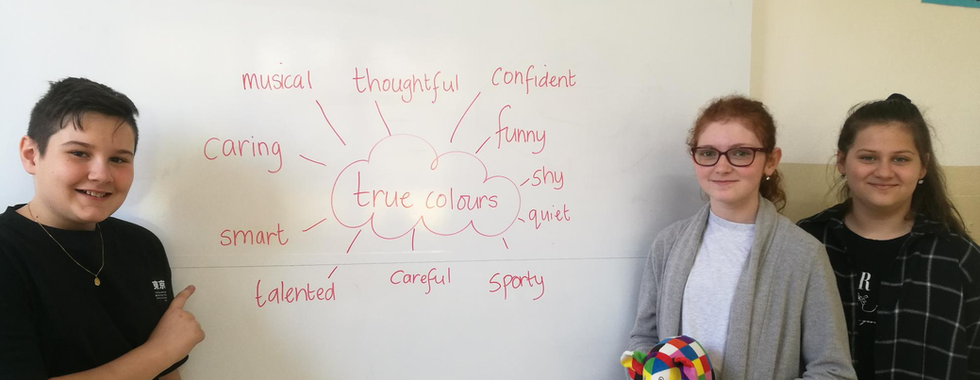 musical
thoughtful
confident
caring
funny
true colours
shy
quiet
smart
talented
careful
sporty
東京
R